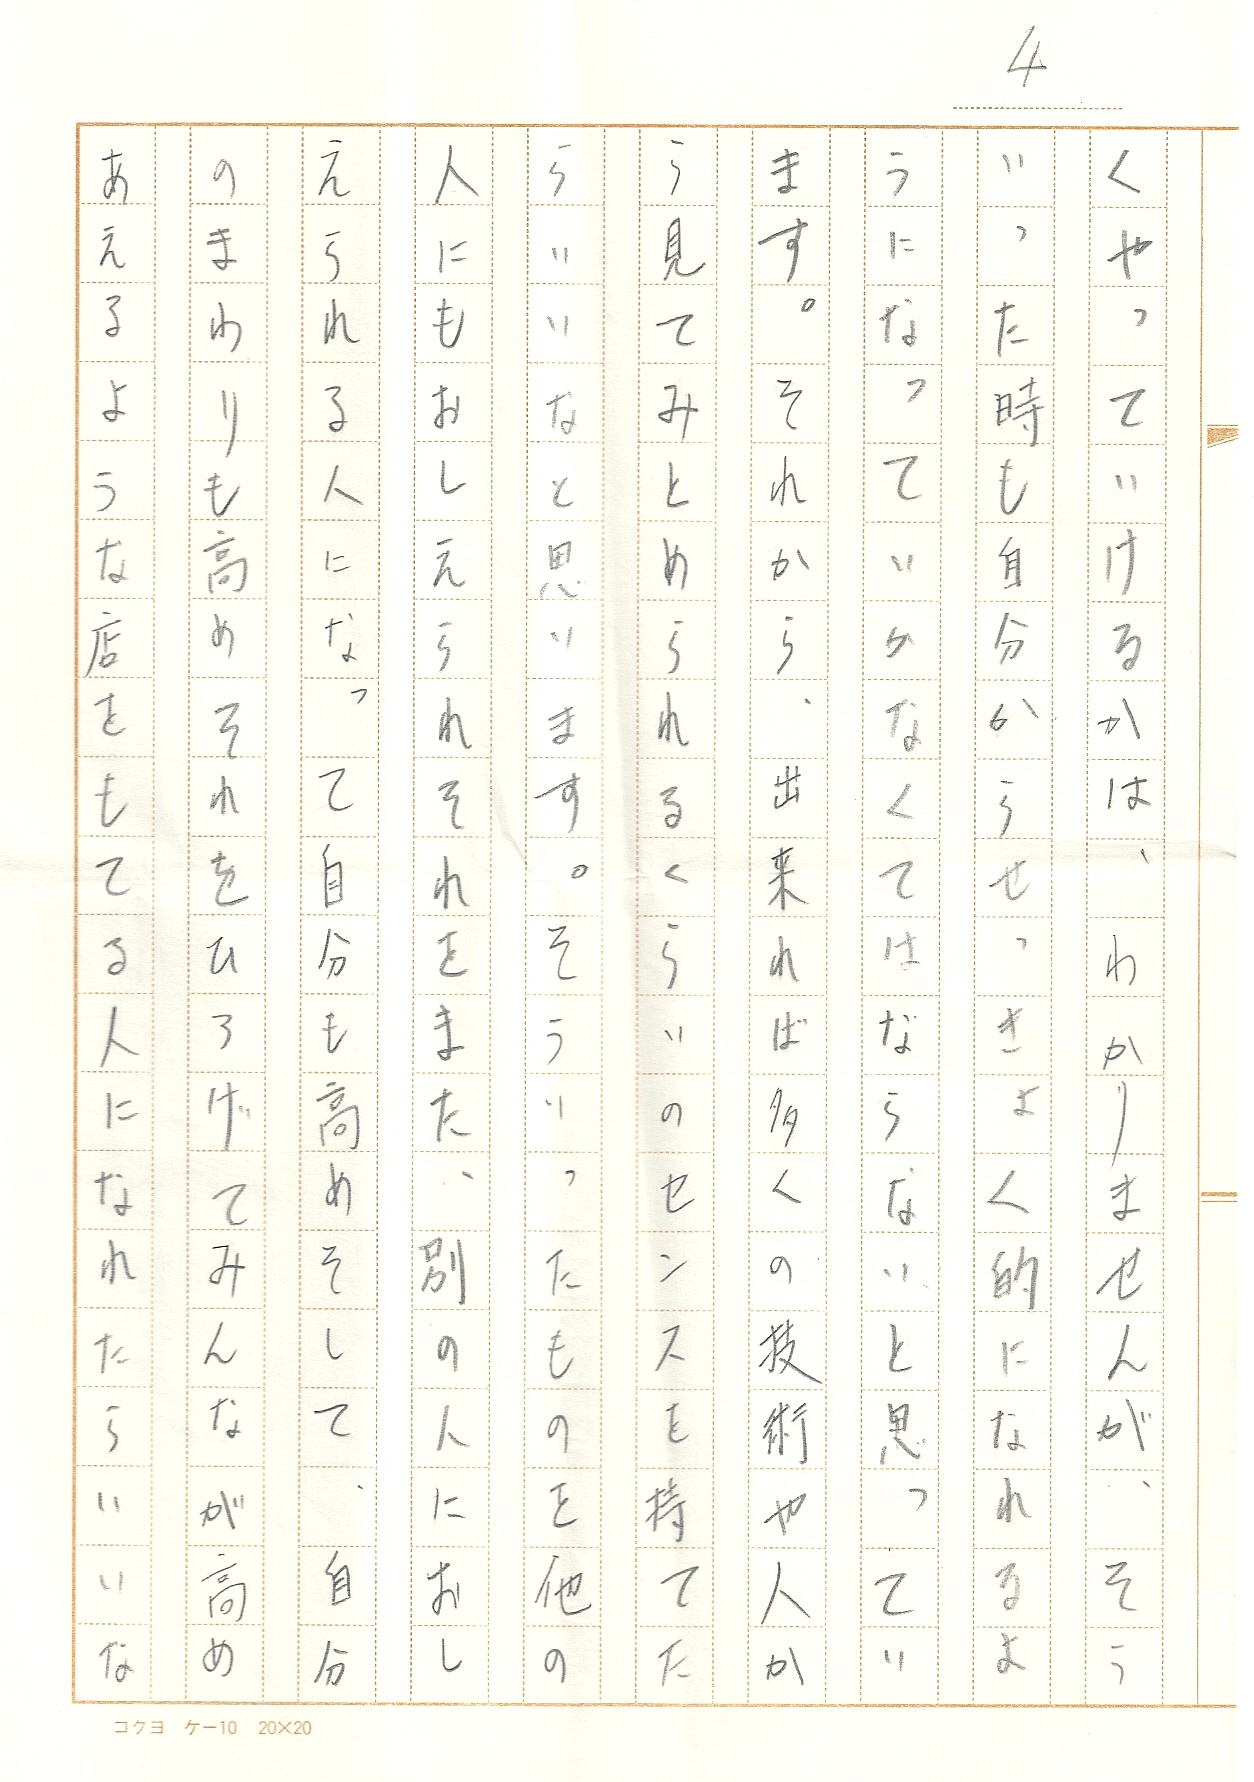 4
くやっていけるかは、わかりませんが、そう
いった時も自分からせっきょく的になれるよ
うになっていかなくてはならないと思ってい
ます。それから、出来れば多くの技術や人か
ら見てみとめられるくらいのセンスを持てた
らいいなと思います。そういったものを他の
人にもおしえられそれをまた、別の人におし
えられる人になって自分も高めそして、自分
のまわりも高めそれをひろげてみんなが高め
あえるような店をもてる人になれたらいいな
コクヨ ケー10 20×20